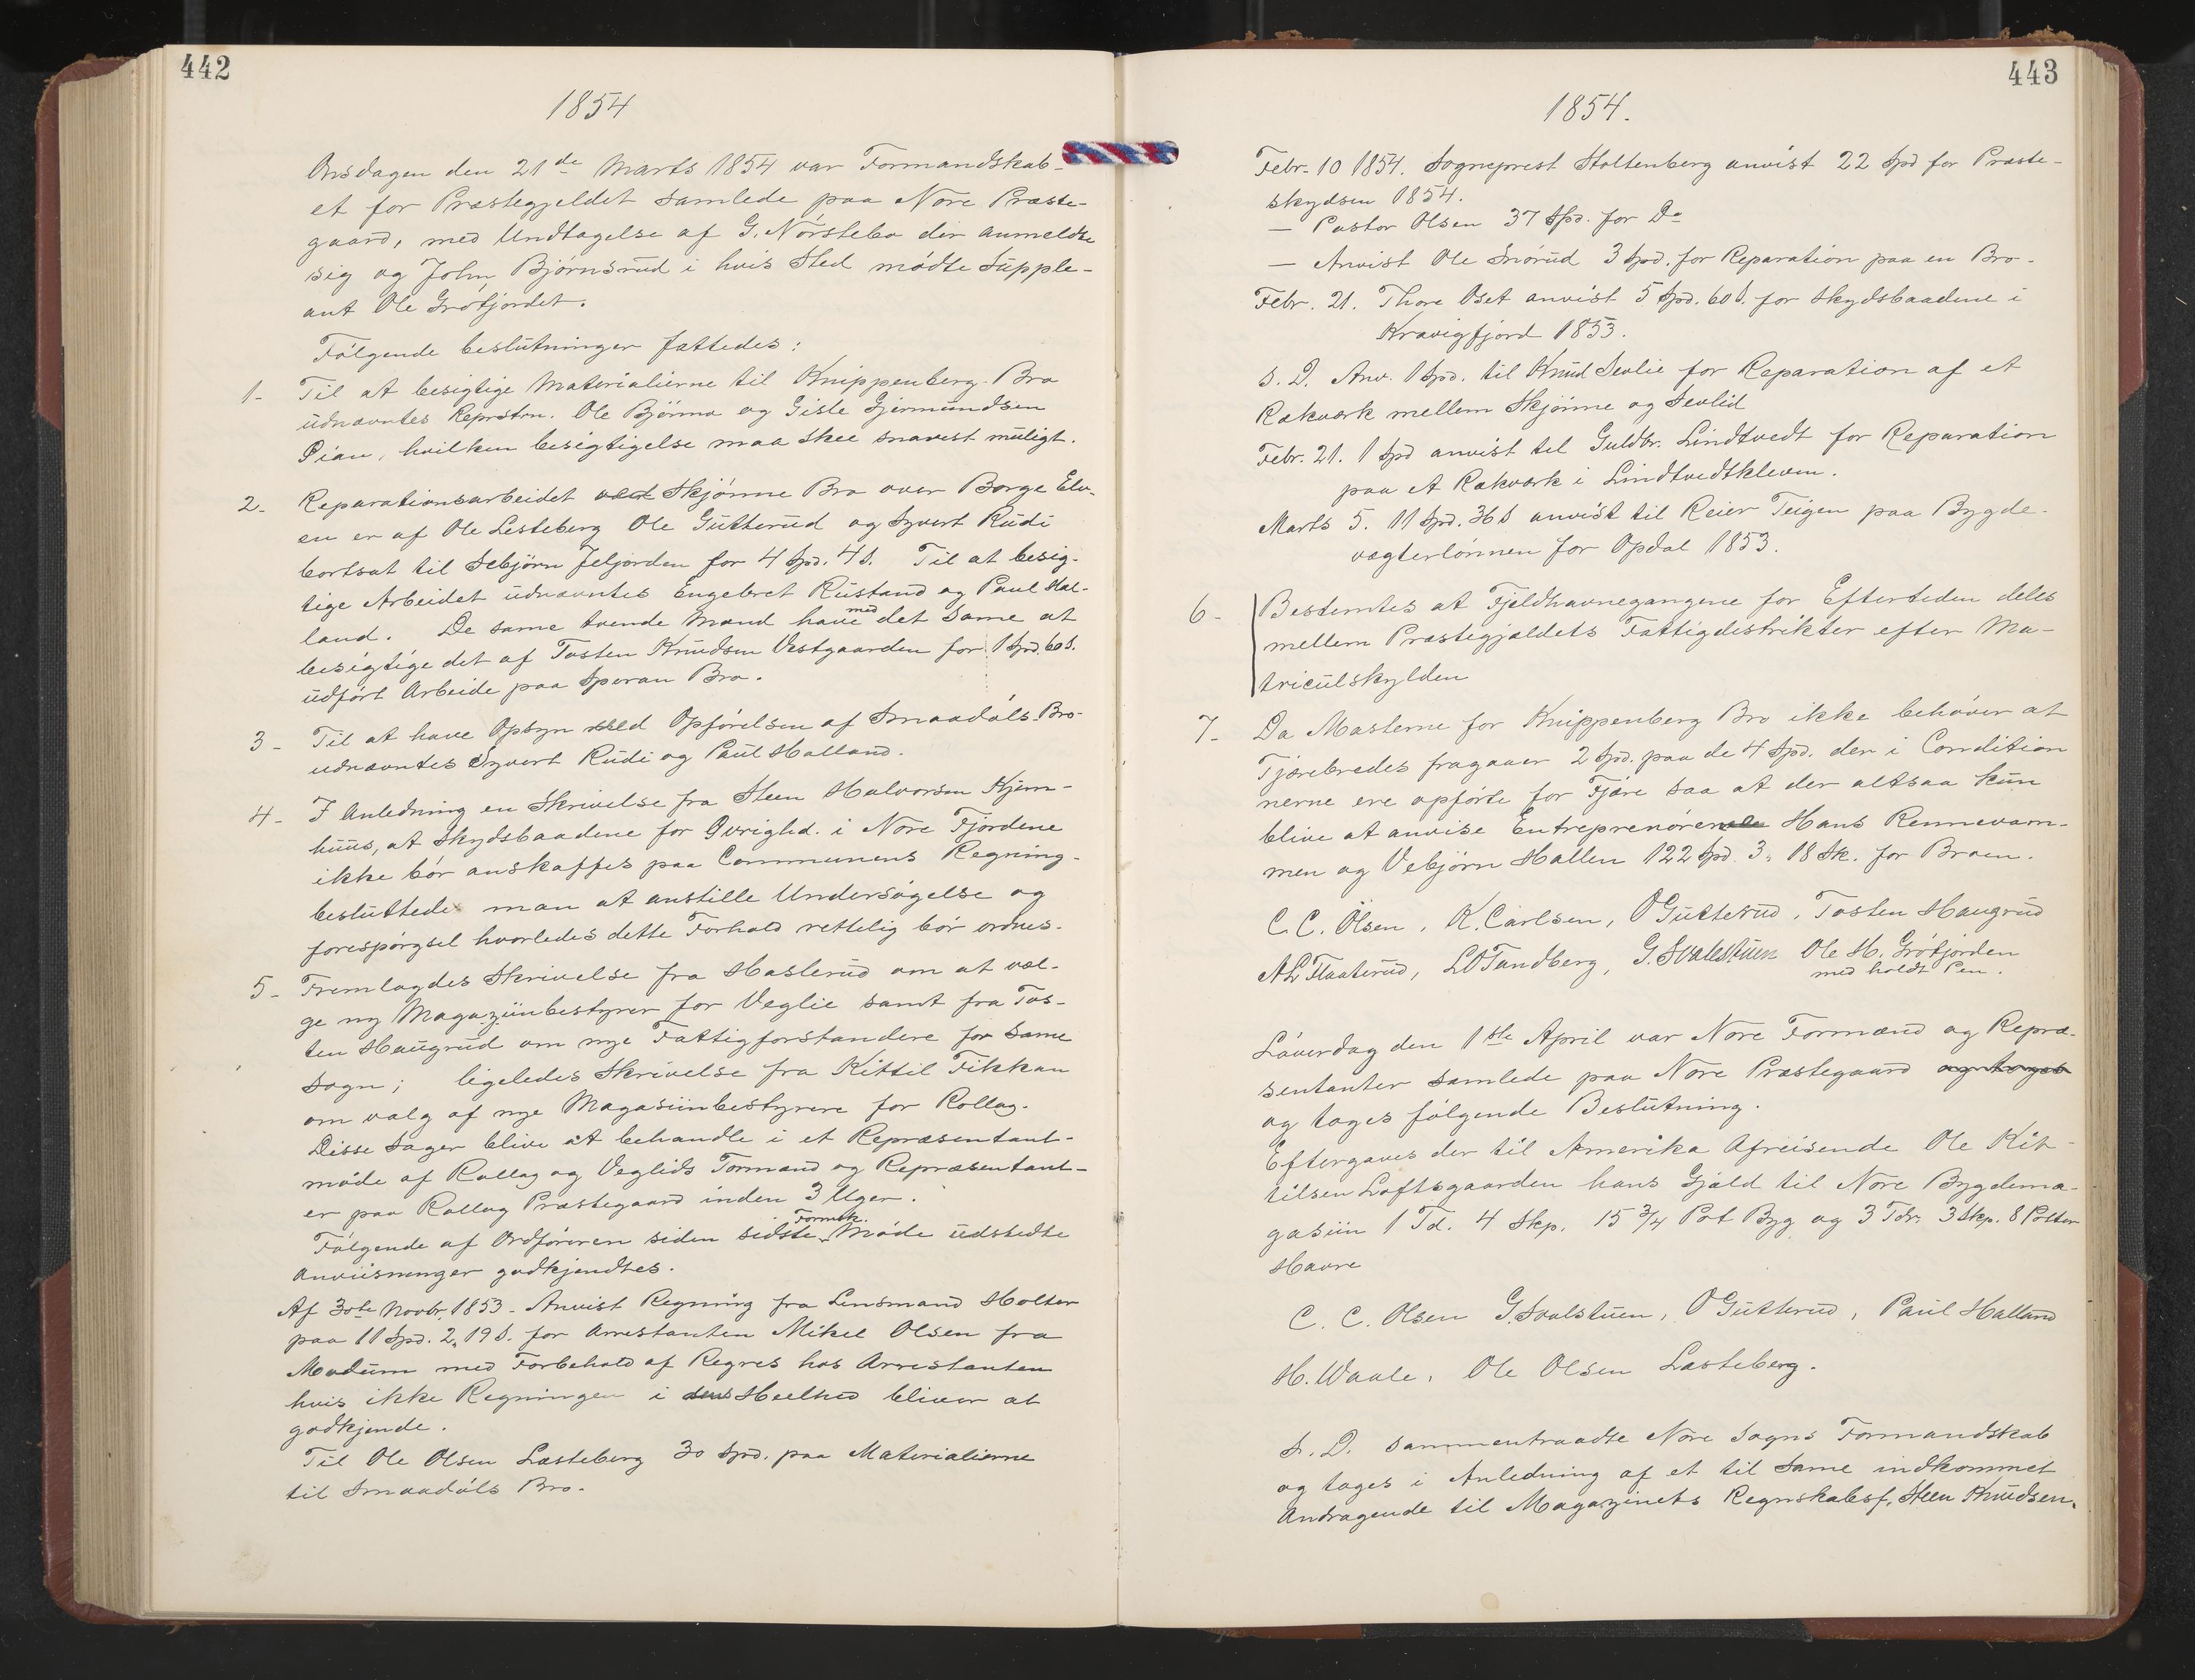 442
1854
Onsdagen den 21de Marts 1854 var Formandskab-
et for Præstegjeldet samlede paa Nore Præste-
gaard, med Undtagelse af G. Nørstebø der anmeldte
sig og John Bjørnsrud i hvis Sted mødte Supple-
ant Ole Grøtjordet.
Følgende beslutninger fattedes:
1- Til at besigtige Materialierne til Knippenberg Bro
udnævntes Reprstrn. Ole Bjønno og Gisle Gjermundsen
Pian, hvilken besigtigelse maa skee snarest muligt.
2- Reparationsarbeidet ved Skjønne Bro over Borge Elv-
en er af Ole Lesteberg Ole Gutterud og Syvert Rudi
bortsat til Sebjørn Jeljorden for 4 Spd. 4 s. Til at besig-
tige Arbeidet udnævntes Engebret Rustand og Paul Hal-
land. De same tvende Mænd have med det Same at
besigtige det af Tosten Knudsen Vestgaarden for 1 Spd. 60 s.
udført Arbeide paa Speran Bro.
3- Til at have Opsyn ved Opførelsen af Smaadøls Bro-
udnævntes Syvert Rudi og Paul Halland.
4- I Anledning en Skrivelse fra Steen Halvorsen Kjem-
huus, at Skydsbaadene for Øvrighd. i Nore Fjordene
ikke bør anskaffes paa Communens Regning-
besluttede man at anstille Undersøgelse og
forespørgsel hvorledes dette Forhold rettelig bør ordnes.
5- Fremlagdes Skrivelse fra Haslerud om at væl-
ge ny Magaziinbestyrer for Veglie samt fra Tos-
ten Haugrud om nye Fattigforstandere for same
Sogn; ligeledes Skrivelse fra Kittil Fikkan
om valg af nye Magasiinbestyrere for Rollag.
Disse Sager blive at behandle i et Repræsentant-
møde af Rollag og Veglids Formænd og Repræsentant-
er paa Rollag Præstegaard inden 3 Uger.
Følgende af Ordføreren siden sidste Formsk. Møde udstedte
Anviisninger godkjendtes.
Af 30te Novbr. 1853- Anvist Regning fra Lensmand Holter
paa 11 Spd. 2, 19 s. for Arrestanten Mikel Olsen fra
Modum med Forbehold af Regres hos Arrestanten
hvis ikke Regningen i dens Heelhed bliver at
godkjende.
Til Ole Olsen Læsteberg 30 Spd. paa Materialierne
til Smaadøls Bro.
443
1854.
Febr. 10 1854. Sogneprest Stoltenberg anvist 22 Spd for Præste-
skydsen 1854.
— Pastor Olsen 37 Spd. for Do
— Anvist Ole Snørud 3 Spd. for Reparation paa en Bro-
Febr. 21. Thore Oset anvist 5 Spd. 60 s. for Skydsbaadene i
Kravigfjord 1853.
S. D. Anv. 1 Spd. til Knud Sevlie for Reparation af et
Rækværk mellem Skjønne og Sevlid
Febr. 21. 1 Spd anvist til Guldbr. Lindtvedt for Reparation
paa et Rækværk i Lindtvedtkleven.
Marts 5. 11 Spd. 36 s anvist til Reier Teigen paa Bygde-
vægterlønnen for Opdal 1853.
6- Bestemtes at Fjeldhavnegangene for Eftertiden deles
mellem Præstegjældets Fattigdistrikter efter Ma-
triculskylden
7- Da Masterne for Knippenberg Bro ikke behøver at
Tjærebredes fragaaer 2 Spd. paa de 4 Spd. der i Condition
nerne ere opførte for Tjære saa at der altsaa kun
blive at anvise Entreprenørene Hans Rennevam-
men og Vebjørn Hallen 122 Spd. 3, 18 Sk. for Broen.
C. C. Olsen, K. Carlsen, O Gutterud, Tosten Haugrud
A L Flaaterud, L O Tandberg, G. Svalestuen Ole H. Grøtjorden
med holdt Pen.
Løverdag den 1ste April var Nore Formænd og Repræ-
sentanter samlede paa Nore Præstegaard og toges
og toges følgende Beslutning.
Eftergaves der til Amerika Afreisende Ole Kit-
tilsen Loftsgaarden hans Gjæld til Nore Bygdema-
gasiin 1 Td. 4 Skp. 15 3/4 Pot Byg og 3 Tdr. 3 Skp. 8 Potter
Havre
C. C. Olsen G. Svalstuen, O Gutterud, Paul Halland
H. Waale, Ole Olsen Læsteberg.
S. D. sammentraadte Nore Sogns Formandskab
og toges i Anledning af et til Same indkommet
Andragende til Magazinets Regnskabsf. Steen Knudsen,